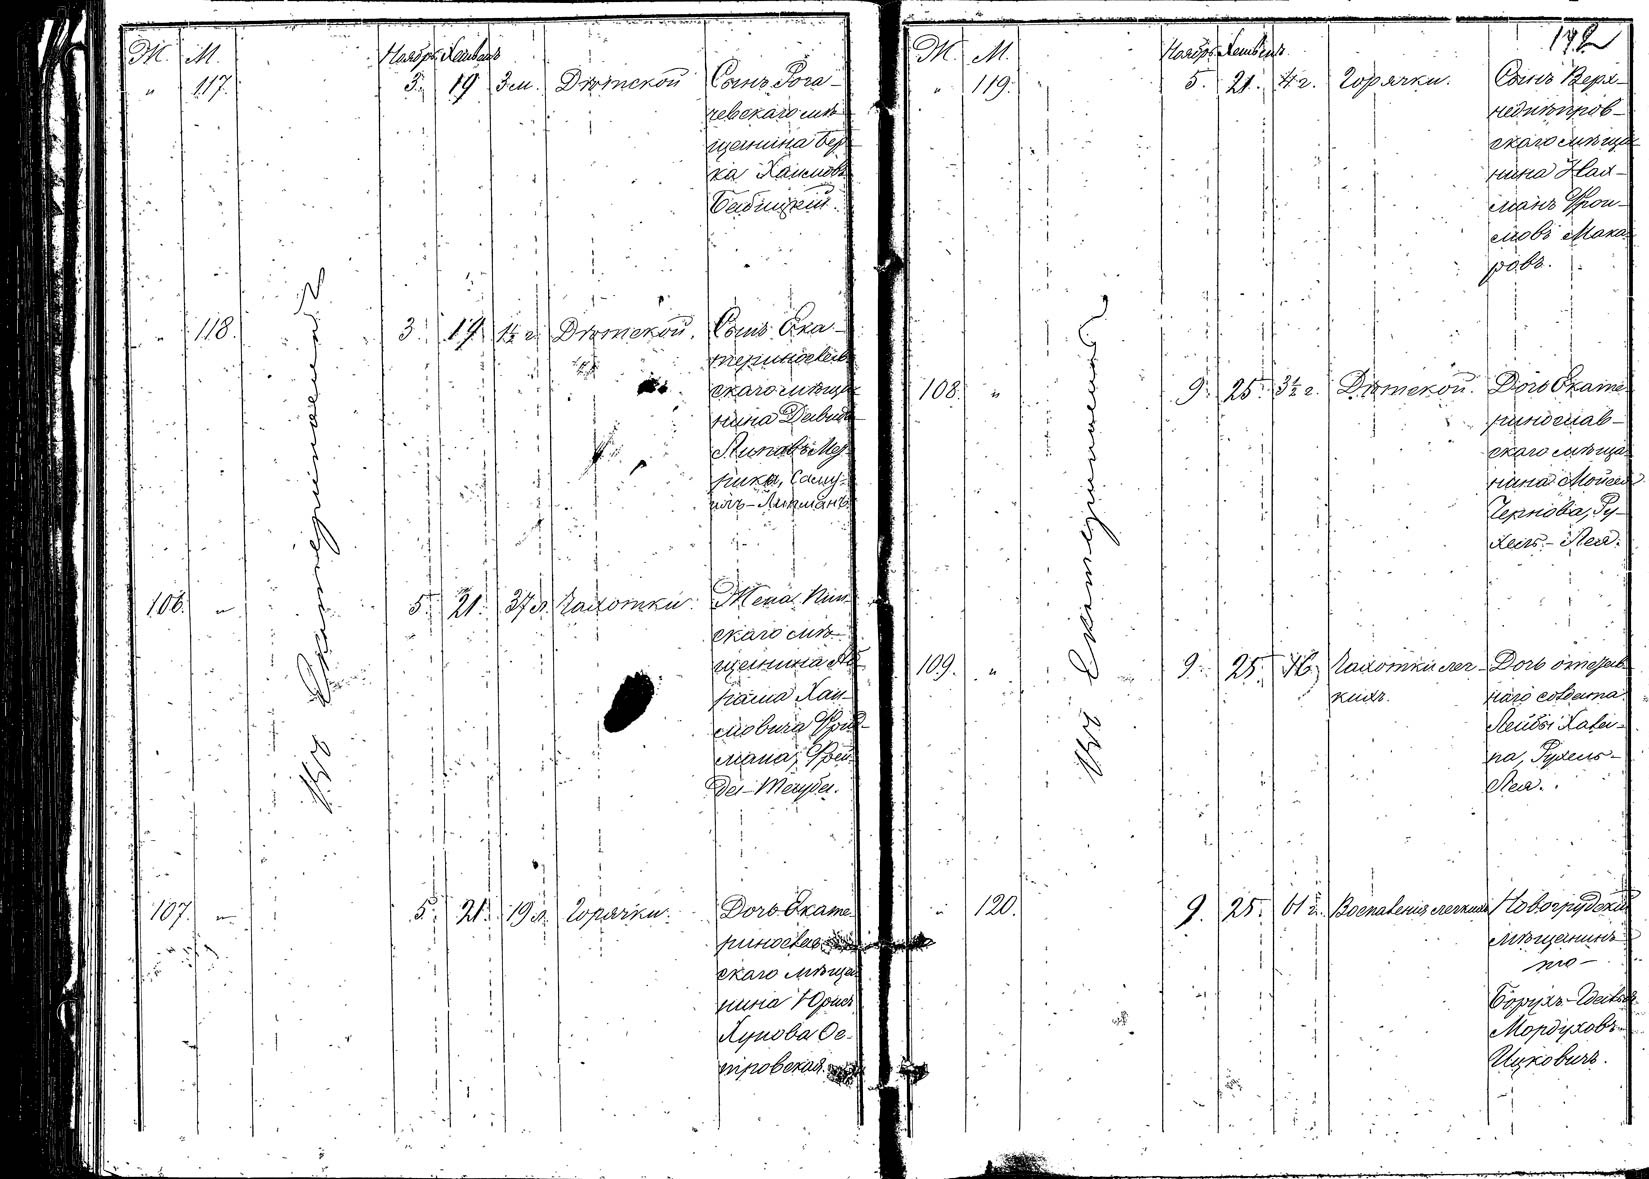 Ж. М. Ноябрь Хешванъ
„ 117. 3. 19 3 м. Дѣтской Сынъ Рога-
чевскаго мѣ-
щанина Бер-
ка Хаимовъ
Бабицкій.
„ 118. 3. 19 1½ г. Дѣтской. Сынъ Ека-
теринослав-
скаго мѣща-
нина Давида
Самy-
илъ-Липманъ.
106. „ 5. 21. 37 л. Чахотки. Жена Пин-
скаго мѣ-
щанина Аб-
рама Хаи-
мовича Фрид-
мана, Фрей-
да-Тауба.
107. „ 5. 21. 19 л. Горячки. Дочь Екате-
ринослав-
скаго мѣща-
нина
Ос-
тровская.
Въ Екатеринославѣ
172
Ж. М. Ноябрь Хешванъ
„ 119. 5. 21. 4 г. Горячки. Сынъ Верх-
неднѣпров-
скаго мѣща-
нина Нах-
манъ Фрои-
мовъ Мака-
ровъ.
108. „ 9. 25. 3½ г. Дѣтской. Дочь Екате-
ринослав-
скаго мѣща-
нина Мойсея
Чернова, Ру-
хель-Лея.
109. „ 9. 25. Чахотки лег-
кихъ. Дочь отстав-
наго солдата
Лейбы
Рухель-
Лея.
„ 120. 9. 25. 61 г. Воспаленія легкихъ Новогрудскій
мѣщанинъ
Борухъ-
Мордуховъ
Ицковичъ.
Въ Екатеринославѣ